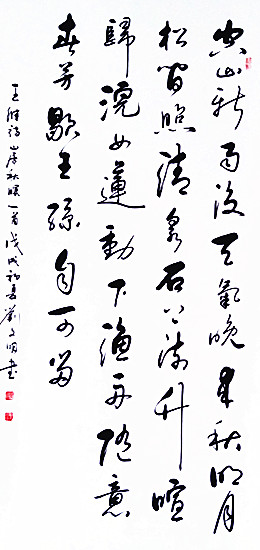 空山新雨後天氣晚來秋明月
松間照清泉石上流竹喧
歸浣女蓮動下漁舟隨意
春芳歇王孫自可留
王維詩山居秋暝一首戊戌初夏劉文書